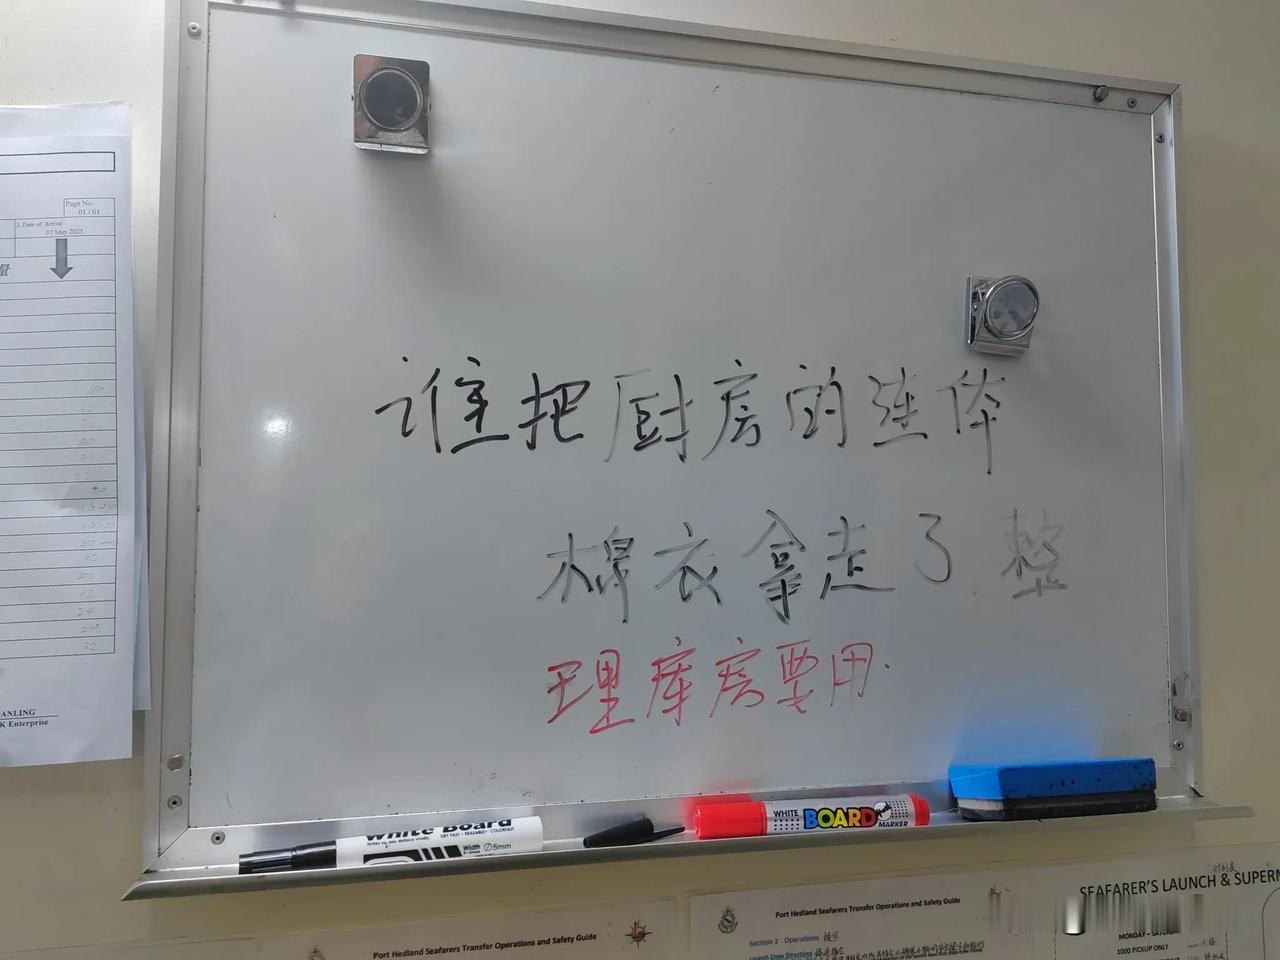 Page No.
01 / 01
3. Date of Arrival
07 May 2025
谁把厨房的连体
棉衣拿走了.整
理库房要用.
ANLING
K Enterprise
White Board
DRY FAST · ERASABLE · COLORFAST
Width
5mm
WHITE BOARD MARKER
Port Hedland Seafarers Transfer Operations and Safety Guide
Port Hedland Seafarers Transfer Operations and Safety Guide
Section 2 - Operations
Launch Crew Directions
SEAFARER'S LAUNCH & SUPERM
MONDAY – SATU
1000 PICKUP ONLY